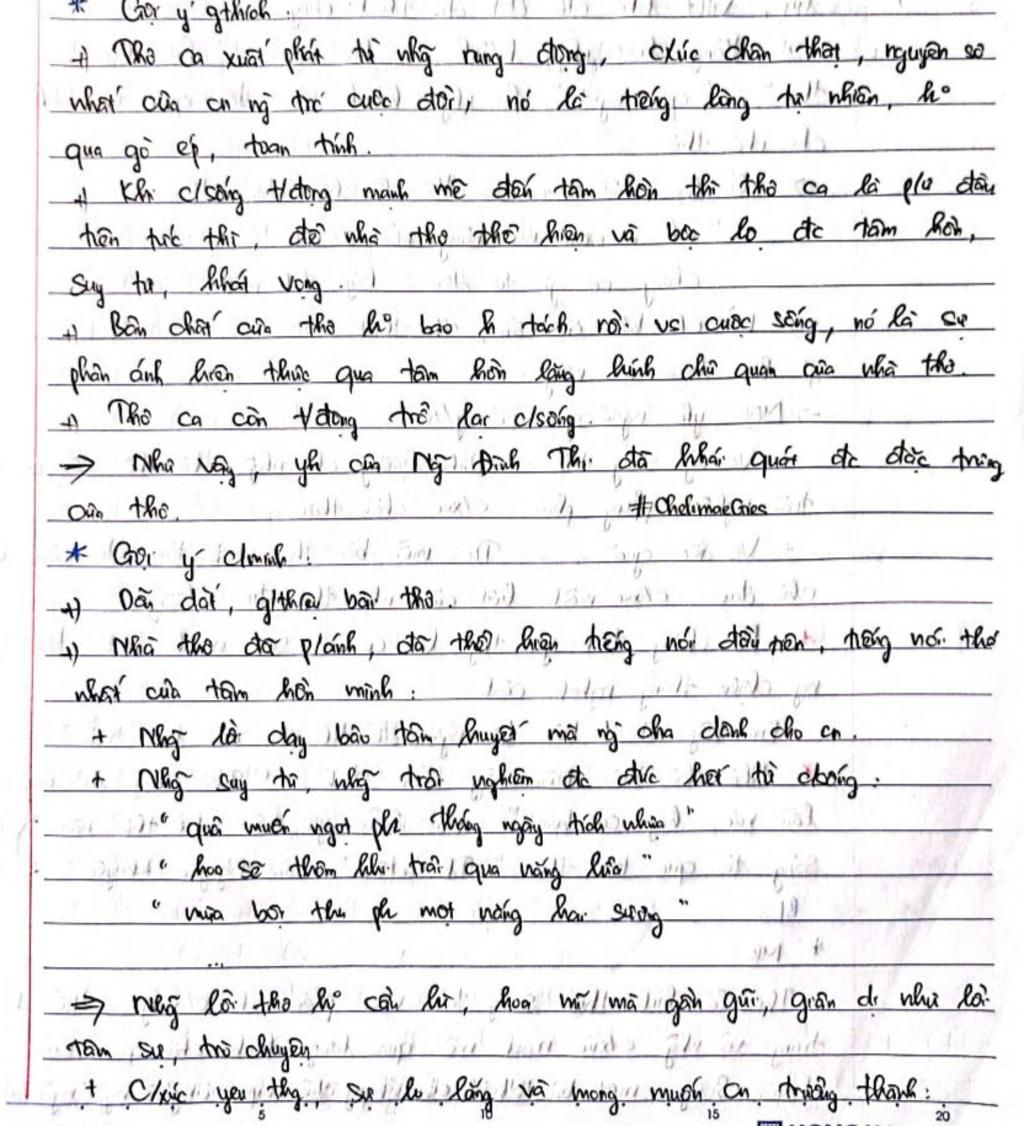 * Gợi ý gthích:
+) Thơ ca xuất phát từ nhg~ rung động, cxúc chân thật, nguyên sơ
nhất của cn ng` trc' cuộc đời, nó là tiếng lòng tự nhiên, ko
qua gò ép, toan tính.
+) Khi c/sống t/động mạnh mẽ đến tâm hồn thì thơ ca là p/ư đầu
tiên tức thì, để nhà thơ thể hiện và bộc lộ đc tâm hồn,
suy tư, khát vọng.
+) Bản chất của thơ ko bao h tách rời vs cuộc sống, nó là sự
phản ánh hiện thực qua tâm hồn lăng kính chủ quan của nhà thơ.
+) Thơ ca còn t/động trở lại c/sống.
=> Như vậy, yk của Ng~ Đình Thi đã khái quát đc đặc trưng
của thơ. #ChelimaeCries
* Gợi ý c/minh:
+) Dẫn dắt, g/thiệu bài thơ.
+) Nhà thơ đã p/ánh, đã thể hiện tiếng nói đầu tiên, tiếng nói thơ
nhất của tâm hồn mình:
+ Nhg~ lời dạy bảo tâm huyết mà ng` cha dành cho cn.
+ Nhg~ suy tư, nhg~ trải nghiệm đc đúc kết từ csống:
" quả muốn ngọt ph tháng ngày tích nhựa "
" hoa sẽ thơm khi trải qua nắng lửa "
" mùa bội thu ph một nắng hai sương "
...
=> Nhg~ lời thơ ko cầu kì, hoa mĩ mà gần gũi, giản dị như lời
tâm sự, trò chuyện
+ C/xúc yêu thg, sự lo lắng và mong muốn cn trưởng thành:
5 10 15 20